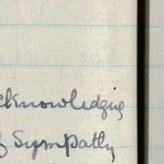 cknowledging
f Sympathy